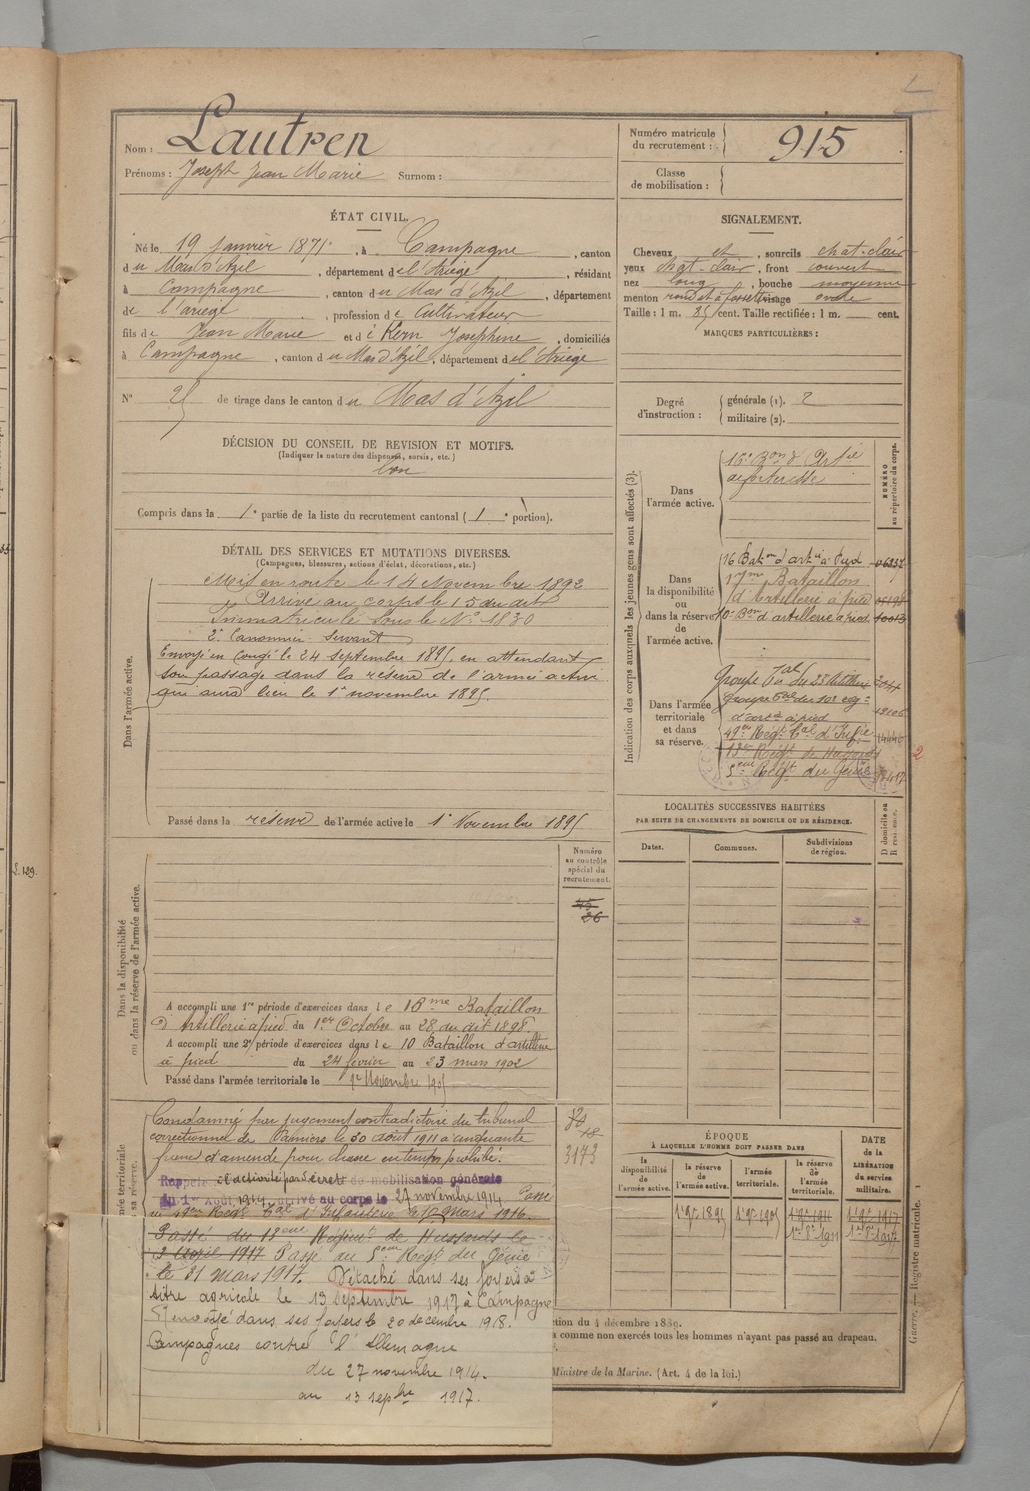 Nom : Lautren
Prénoms : Joseph Jean Marie Surnom :
Numéro matricule
du recrutement : 915
Classe
de mobilisation :
ÉTAT CIVIL.
Né le 19 Janvier 1871 , à Campagne , canton
du Mas d'Azil , département de l'Ariège , résidant
à Campagne , canton du Mas d'Azil , département
de l'ariège , profession de Cultivateur
fils de Jean Marie et de Kern Josephine , domiciliés
à Campagne , canton du Mas d'Azil , département de l'Ariège
N° de tirage dans le canton du Mas d'Azil
DÉCISION DU CONSEIL DE REVISION ET MOTIFS.
(Indiquer la nature des dispenses, sursis, etc.)
bon
Compris dans la 1e partie de la liste du recrutement cantonal ( 1e portion).
DÉTAIL DES SERVICES ET MUTATIONS DIVERSES.
(Campagnes, blessures, actions d'éclat, décorations, etc.)
Dans l'armée active.
Mis en route le 14 Novembre 1892
Arrivé au corps le 15 du dit
Immatriculé sous le N° 1830
2e Canonnier Servant
Envoyé en congé le 24 septembre 1895, en attendant
son passage dans la réserve de l'armée active
qui aura lieu le 1er novembre 1895.
Passé dans la réserve de l'armée active le 1er Novembre 1895
Dans la disponibilité
ou dans la réserve de l'armée active.
Numéro
au contrôle
spécial du
recrutement.
45
26
A accompli une 1re période d'exercices dans le 16me Bataillon
d'Artillerie à pied du 1er Octobre au 28 du dit 1898.
A accompli une 2e période d'exercices dans le 10 Bataillon d'artillerie
à pied du 24 février au 23 mars 1902
Passé dans l'armée territoriale le 1er Novembre 1905
Condamné par jugement contradictoire du tribunal
correctionnel de Pamiers le 30 août 1911 à cinquante
francs d'amende pour chasse en temps prohibé.
3173
Rappelé à l'activité par décret de mobilisation générale
du 1er Août 1914, arrivé au corps le 27 novembre 1914 Passé
au 49eme Régt Tal d'Infanterie le 10 Mars 1916.
Passé du 13eme Régiment de Hussards le
2 Avril 1917 Passé au 5eme Régt du Génie
le 31 mars 1917. Détaché dans ses foyers à
titre agricole le 13 Septembre 1917 à Campagne
Renvoyé dans ses foyers le 20 décembre 1918.
Campagnes contre l'Allemagne
du 27 novembre 1914.
au 13 sepbre 1917.
SIGNALEMENT.
Cheveux et , sourcils chat-clair
yeux chat-clair , front couvert
nez long , bouche moyenne
menton rond et à fossette visage ovale
Taille : 1 m. 85 cent. Taille rectifiée : 1 m. cent.
MARQUES PARTICULIÈRES :
Degré
d'instruction :
générale (1). 2
militaire (2).
Indication des corps auxquels les jeunes gens sont affectés (3).
NUMÉRO
au répertoire du corps.
Dans
l'armée active.
16e Bon d'Artie
de forteresse
Dans
la disponibilité
ou
dans la réserve
de
l'armée active.
16 Baton d'artie à Pied
17me Bataillon
d'Artillerie à pied
10e Bon d'artillerie à pied
Dans l'armée
territoriale
et dans
sa réserve.
Groupe Tal
d'artie à pied
49e Régt Tal d'Infie
13e Régt de Hussards
5eme Régt du Génie
2
LOCALITÉS SUCCESSIVES HABITÉES
PAR SUITE DE CHANGEMENTS DE DOMICILE OU DE RÉSIDENCE.
Dates.
Communes.
Subdivisions
de région.
D domicile ou
R résidence.
ÉPOQUE
À LAQUELLE L'HOMME DOIT PASSER DANS
la
disponibilité
de
l'armée active.
la réserve
de
l'armée active.
l'armée
territoriale.
la réserve
de
l'armée
territoriale.
DATE
de la
LIBÉRATION
du service
militaire.
1er 9bre 1895
1er 9bre 1905
1er 9bre 1911
1er 9bre 1917
1er 8bre 1911
1er 8bre 1917
ction du 4 décembre 1889.
s comme non exercés tous les hommes n'ayant pas passé au drapeau.
Ministre de la Marine. (Art. 4 de la loi.)
Guerre. — Registre matricule. 1